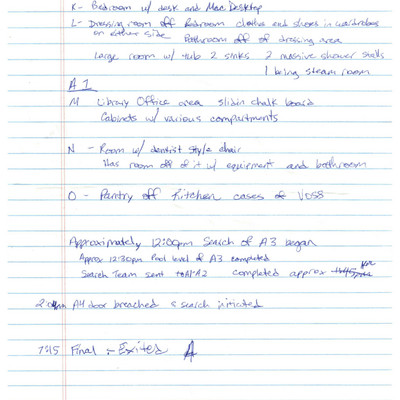 K- Bedroom w/ desk and Mac Desktop
L- Dressing room off Bedroom clothes and shoes in wardrobes
on either side Bathroom off of dressing area
Large room w/ tub 2 sinks 2 massive shower stalls
1 being steam room
A1
M Library Office area slidin chalk board
Cabinets w/ various compartments
N - Room w/ dentist style chair
Has room off of it w/ equipment and bathroom
O - Pantry off Kitchen cases of VOSS
Approximately 12:00pm Search of A3 began
Approx 12:30pm Pool level of A3 completed
Search Team sent to A1-A2 completed approx
A4 door breached & search initiated
7:15 Final - Exited